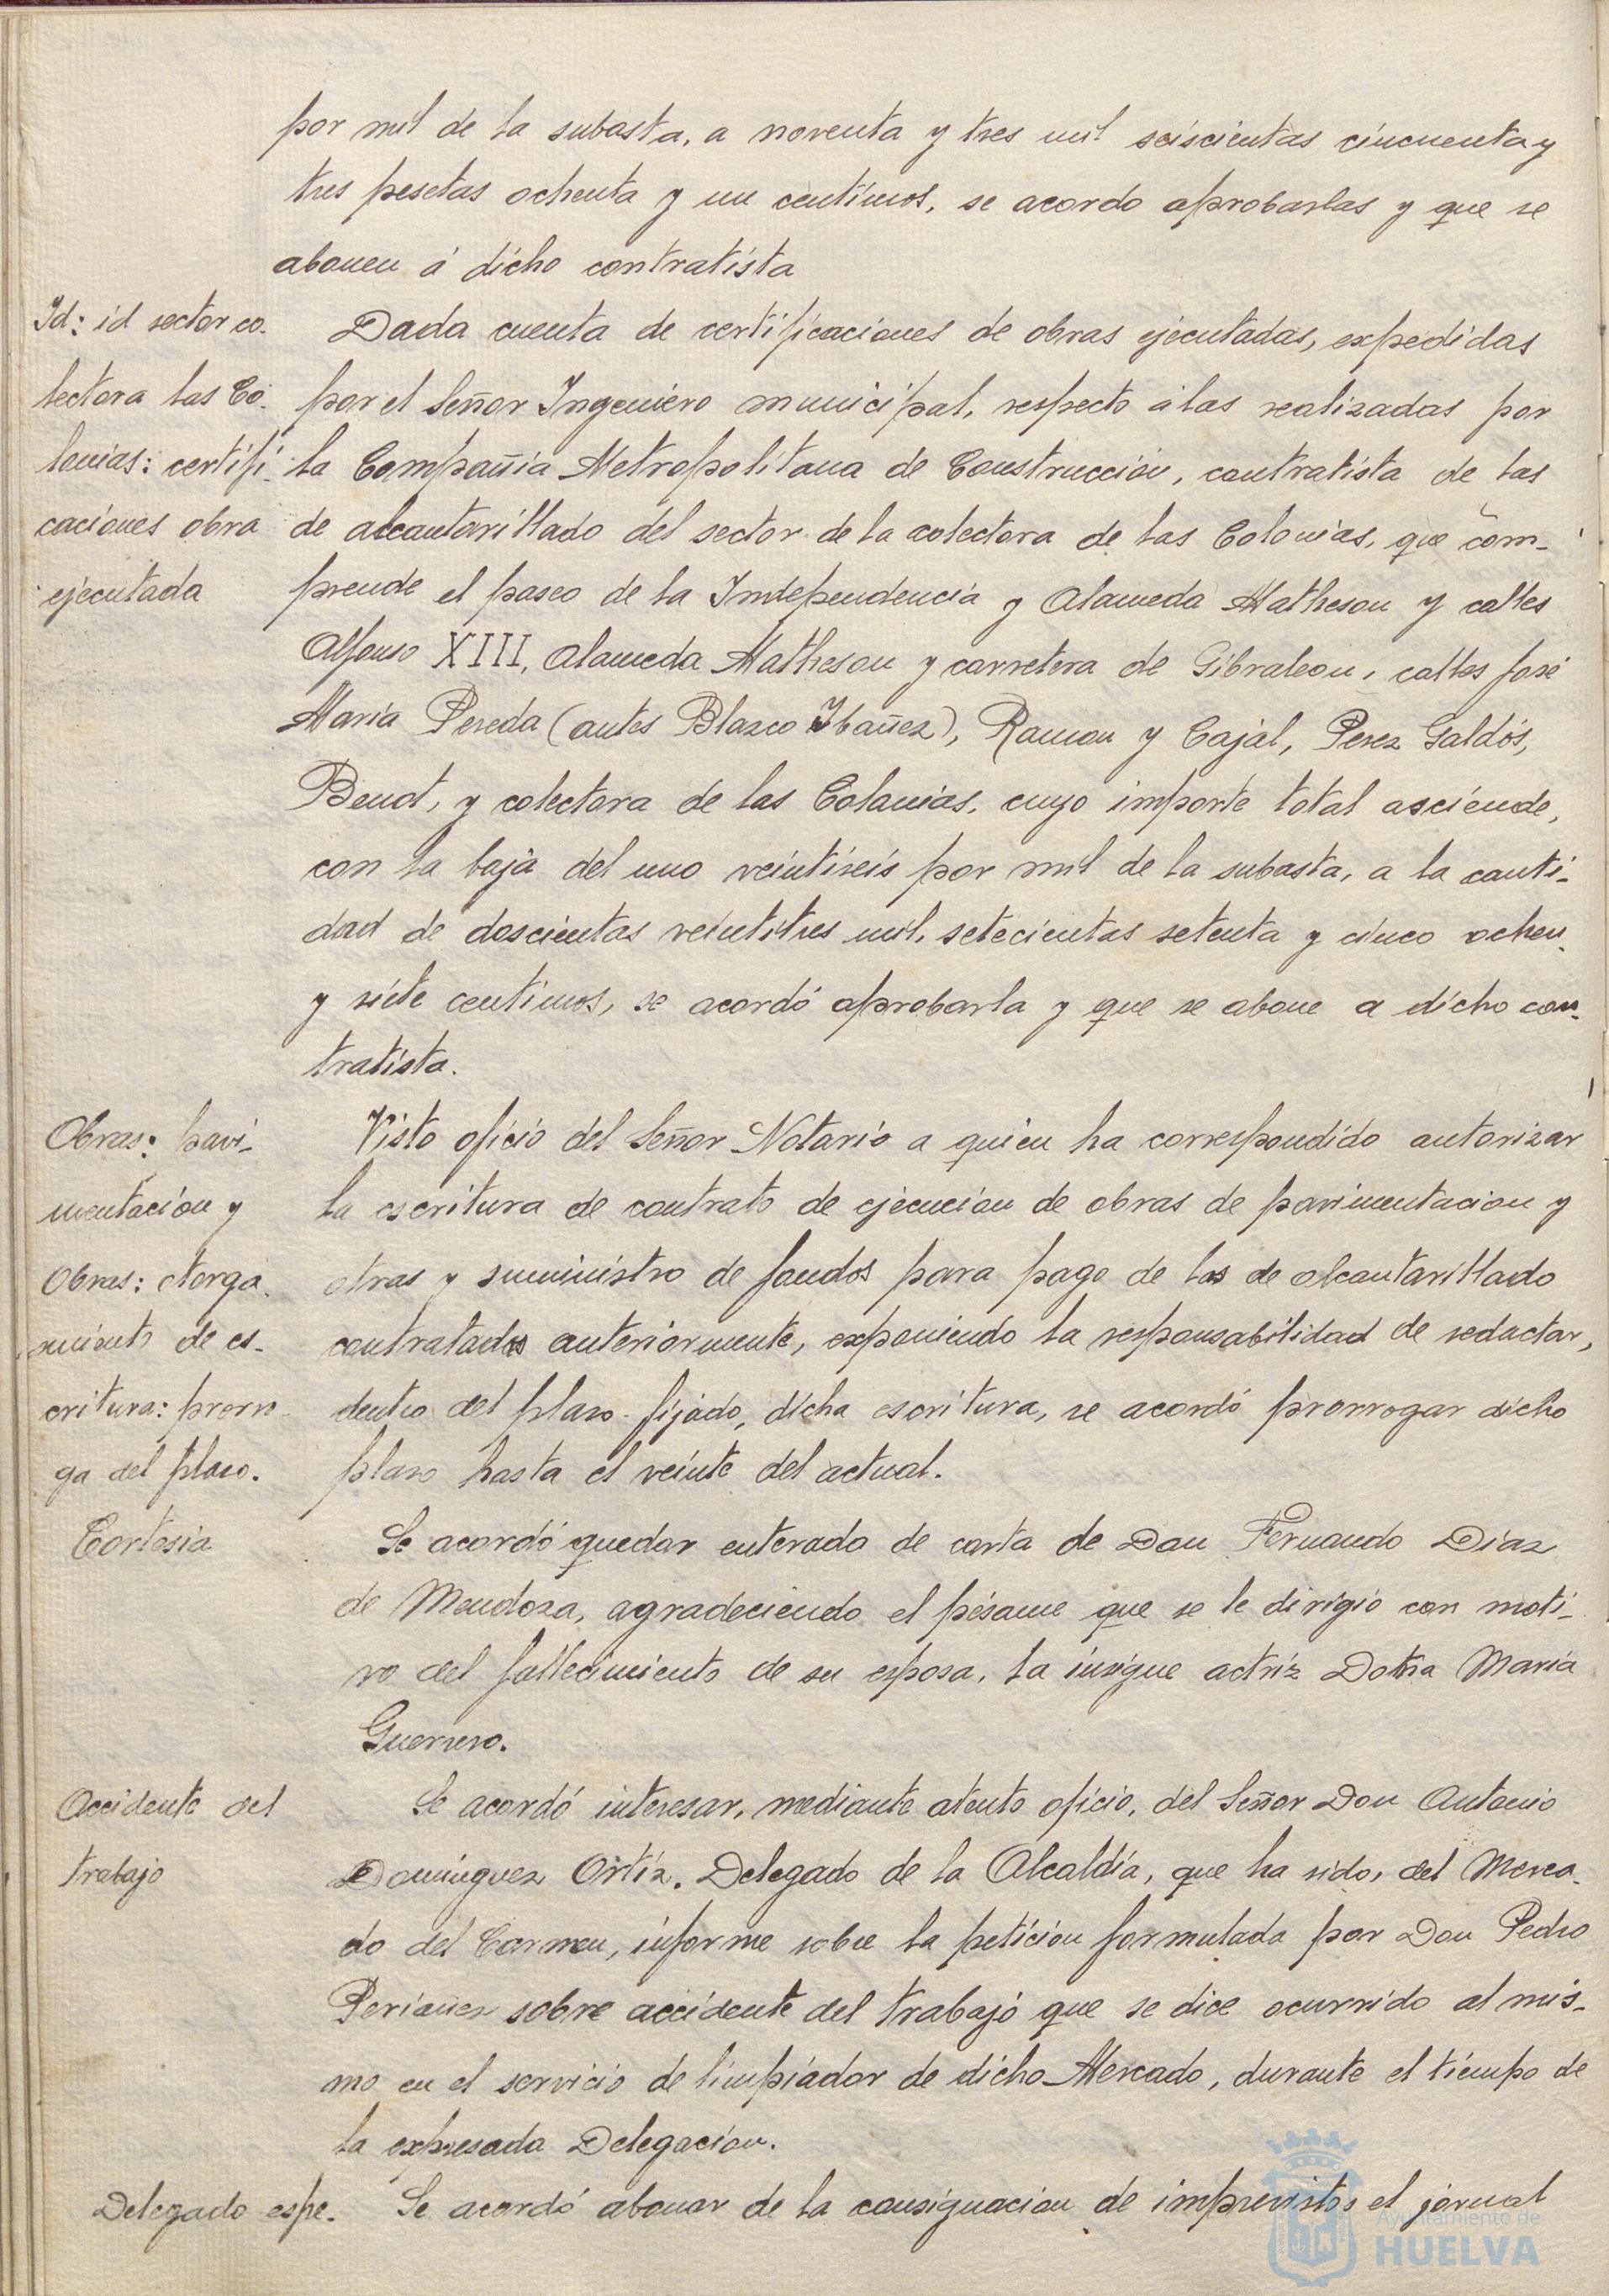 por mil de la subasta, a noventa y tres mil seiscientas cincuenta y
tres pesetas ochenta y un centimos, se acordo aprobarlas y que se
abonen á dicho contratista
Id: id sector co-
lectora las Co-
lonias: certifi-
caciones obra
ejecutada
Dada cuenta de certificaciones de obras ejecutadas, expedidas
por el Señor Ingeniero municipal, respecto a las realizadas por
la Compañia Metropolitana de Construcción, contratista de las
de alcantarillado del sector de la colectora de las Colonias, que com-
prende el paseo de la Independencia y Alameda Matheson y calles
Alfonso XIII, Alameda Matheson y carretera de Gibraleon, calles José
Maria Pereda (antes Blazco Ibañez), Ramon y Cajal, Perez Galdós,
Benot, y colectora de las Colonias, cuyo importe total asciende,
con la baja del uno veintiseis por mil de la subasta, a la canti-
dad de doscientas veintitres mil, setecientas setenta y cinco ochen-
y siete centimos, se acordó aprobarla y que se abone a dicho con-
tratista.
Obras: pavi-
mentación y
Obras: otorga-
miento de es-
critura: prorro-
ga del plazo.
Visto oficio del Señor Notario a quien ha correspondido autorizar
la escritura de contrato de ejecucion de obras de pavimentacion y
otras y suministro de fondos para pago de las de alcantarillado
contratados anteriormente, exponiendo la responsabilidad de redactar,
dentro del plazo fijado, dicha escritura, se acordó prorrogar dicho
plazo hasta el veinte del actual.
Cortesia
Se acordó quedar enterado de carta de Don Fernando Diaz
de Mendoza, agradeciendo el pésame que se le dirigio con moti-
vo del fallecimiento de su esposa, la insigne actriz Doña Maria
Guerrero.
Accidente del
trabajo
Se acordó interesar, mediante atento oficio, del Señor Don Antonio
Dominguez Ortiz, Delegado de la Alcaldía, que ha sido, del Merca-
do del Carmen, informe sobre la peticion formulada por Don Pedro
Periañez sobre accidente del trabajo que se dice ocurrido al mis-
mo en el servicio de limpiador de dicho Mercado, durante el tiempo de
la expresada Delegacion.
Delegado espe-
Se acordó abonar de la consignacion de imprevistos el jornal
Ayuntamiento de
HUELVA